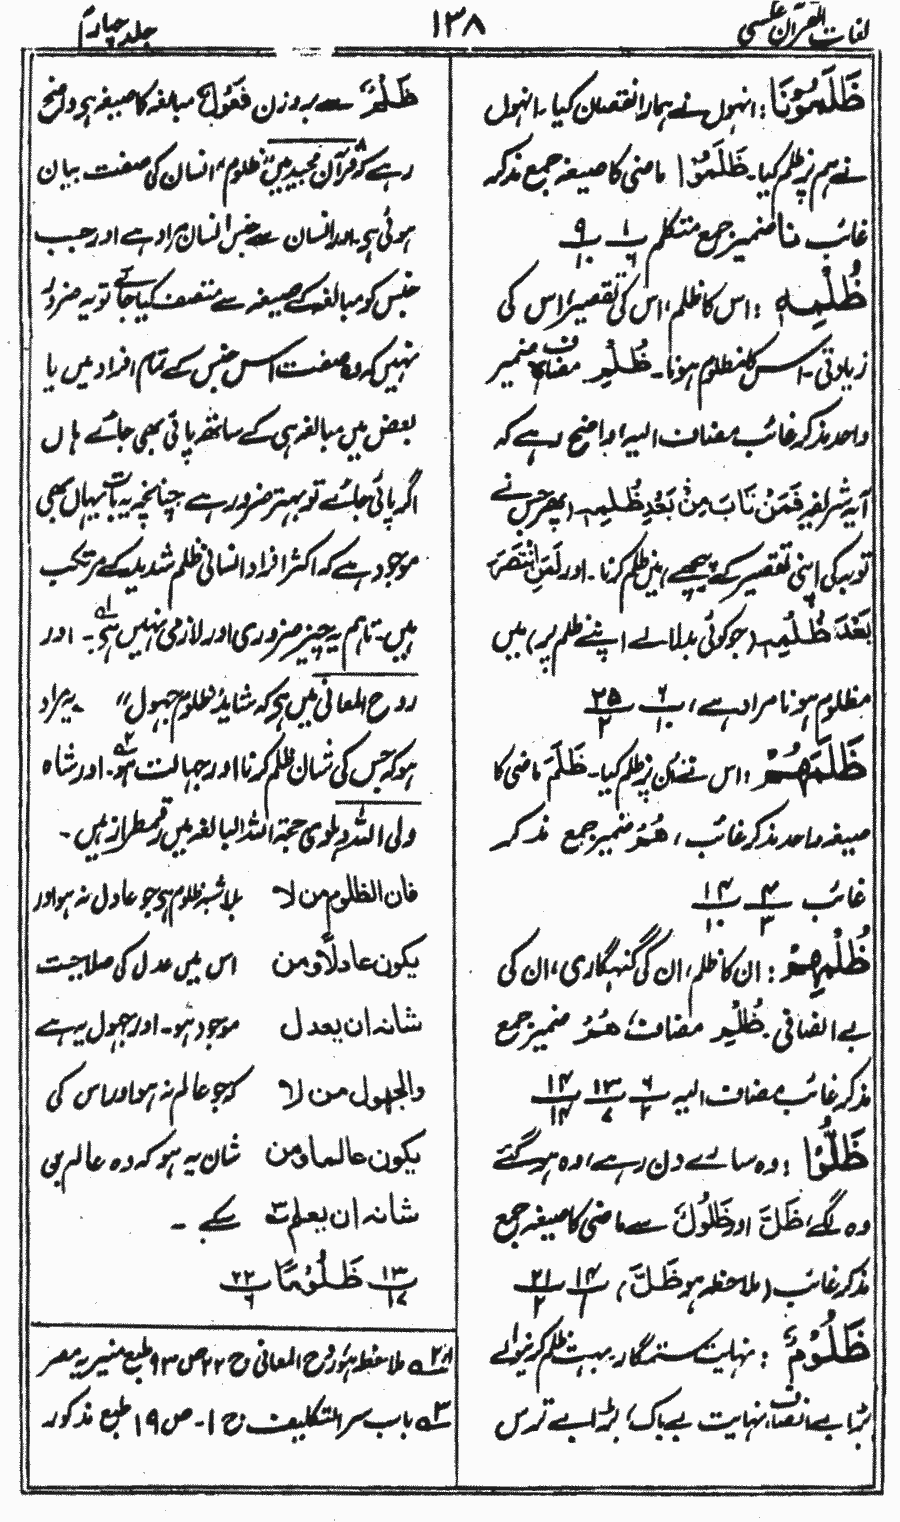 لغات القرآن عکسی
۱۳۸
جلد چہارم
ظَلَمُوْنَا: انہوں نے ہمارا نقصان کیا۔ انہوں
نے ہم پر ظلم کیا۔ ظَلَمُوْا ماضی کا صیغہ جمع مذکر
غائب نا ضمیر جمع متکلم
ظُلْمِہٖ: اس کا ظلم، اس کی تقصیر، اس کی
زیادتی۔ اس کا مظلوم ہونا۔ ظُلْمِ مضاف ضمیر
واحد مذکر غائب مضاف الیہ، واضح رہے کہ
آیہ شریفہ فَمَنْ تَابَ مِنْۢ بَعْدِ ظُلْمِہٖ (پھر جس نے
توبہ کی اپنی تقصیر کے پیچھے) میں ظلم کرنا۔ اور لَمَنِ انْتَصَرَ
بَعْدَ ظُلْمِہٖ (جو کوئی بدلا لے اپنے ظلم پر) میں
مظلوم ہونا مراد ہے، ۶/۱۰ ۲۵/۲
ظَلَمَھُمْ: اس نے اُن پر ظلم کیا۔ ظَلَمَ ماضی کا
صیغہ واحد مذکر غائب، ھُمْ ضمیر جمع مذکر
غائب ۴/۳ ۱۴/۱۰
ظُلْمِھِمْ: ان کا ظلم، ان کی گنہگاری، ان کی
بے انصافی۔ ظُلْمِ مضاف، ھُمْ ضمیر جمع
مذکر غائب مضاف الیہ ۶/۲ ۱۳/۷ ۱۴/۱۴
ظَلُّوْا: وہ سارے دن رہے، وہ ہو گئے
وہ لگے، ظَلَّ اور ظَلُوْلٌ سے ماضی کا صیغہ جمع
مذکر غائب (ملاحظہ ہو ظَلَّ) ۱۴/۱ ۲۱/۲
ظَلُوْمٌ: نہایت ستمگار، بہت ظلم کرنیوالے
بڑا بے انصاف، نہایت بے باک، بڑا بے ترس
ظُلْمٌ سے بروزن فَعُوْلٌ مبالغہ کا صیغہ ہے واضح
رہے کہ قرآن مجید میں "ظلوم" انسان کی صفت بیان
ہوئی ہے۔ اور انسان سے جنس انسان مراد ہے اور جب
جنس کو مبالغہ کے صیغہ سے متصف کیا جائے تو یہ ضرور
نہیں کہ وہ صفت اس جنس کے تمام افراد میں یا
بعض میں مبالغہ ہی کے ساتھ پائی بھی جائے ہاں
اگر پائی جائے تو بہتر ضرور ہے، چنانچہ یہ بات یہاں بھی
موجود ہے کہ اکثر افراد انسانی ظلم شدید کے مرتکب
ہیں۔ تاہم یہ چیز ضروری اور لازمی نہیں ہے۔ اور
روح المعانی میں ہے کہ شاید ظلوم جہول" یہ مراد
ہو کہ جس کی شان ظلم کرنا اور جہالت ہو۔ اور شاہ
ولی اللہ دہلوی حجۃ اللہ البالغہ میں رقمطراز ہیں۔
فان الظلوم من لا بلاشبہ ظلوم ہے جو عادل نہ ہو اور
یکون عادلا و من اس میں عدل کی صلاحیت
شانہ ان یعدل موجود ہو۔ اور جہول یہ ہے
والجھول من لا کہ جو عالم نہ ہو اور اس کی
یکون عالما و من شان یہ ہو کہ وہ عالم ہی
شانہ ان یعلم ۳ بنے۔
۱۳/۱۷ ظَلُوْمًا ۲۲/۶
۲،۱ ملاحظہ ہو روح المعانی ج ۲۲ ص ۹۳ طبع منیریہ مصر
۳ باب سر التکلیف ج ۱۔ ص ۱۹ طبع مذکور